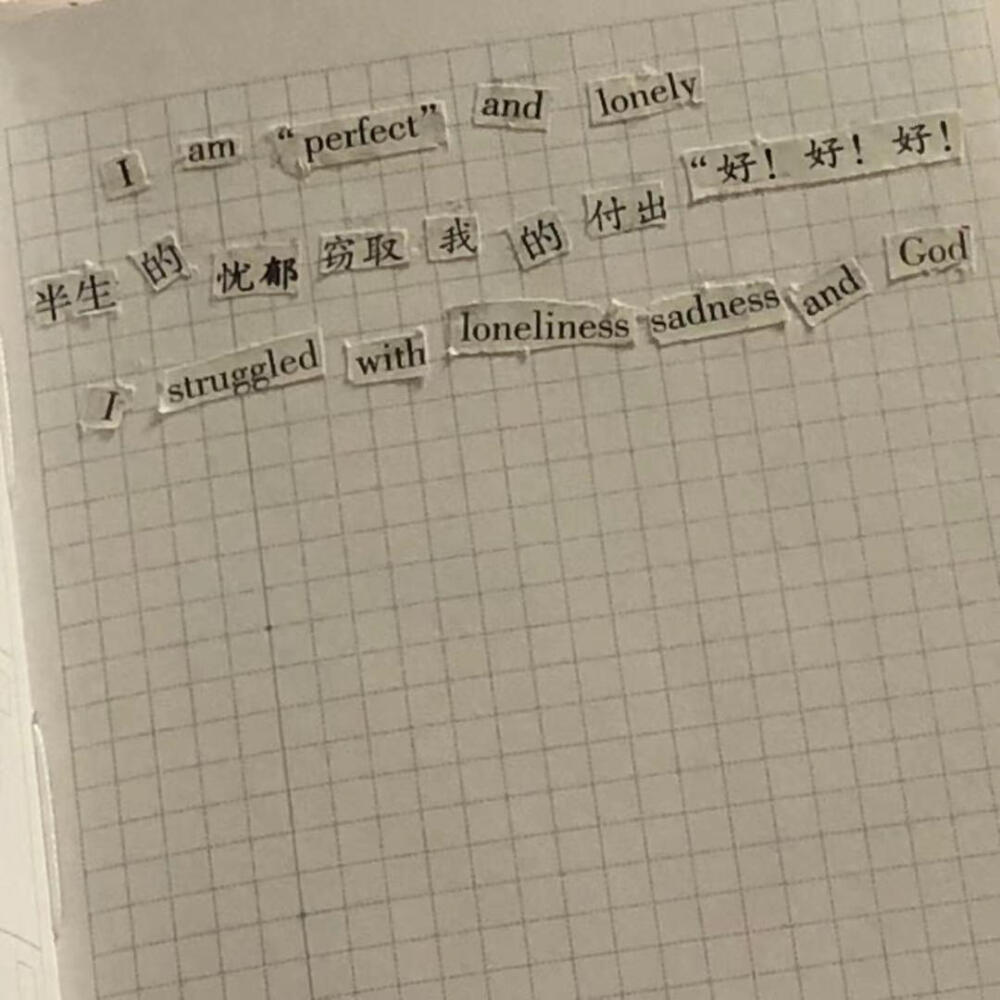 I am “perfect” and lonely
半生的忧郁窃取我的付出“好！好！好！
I struggled with loneliness sadness and God